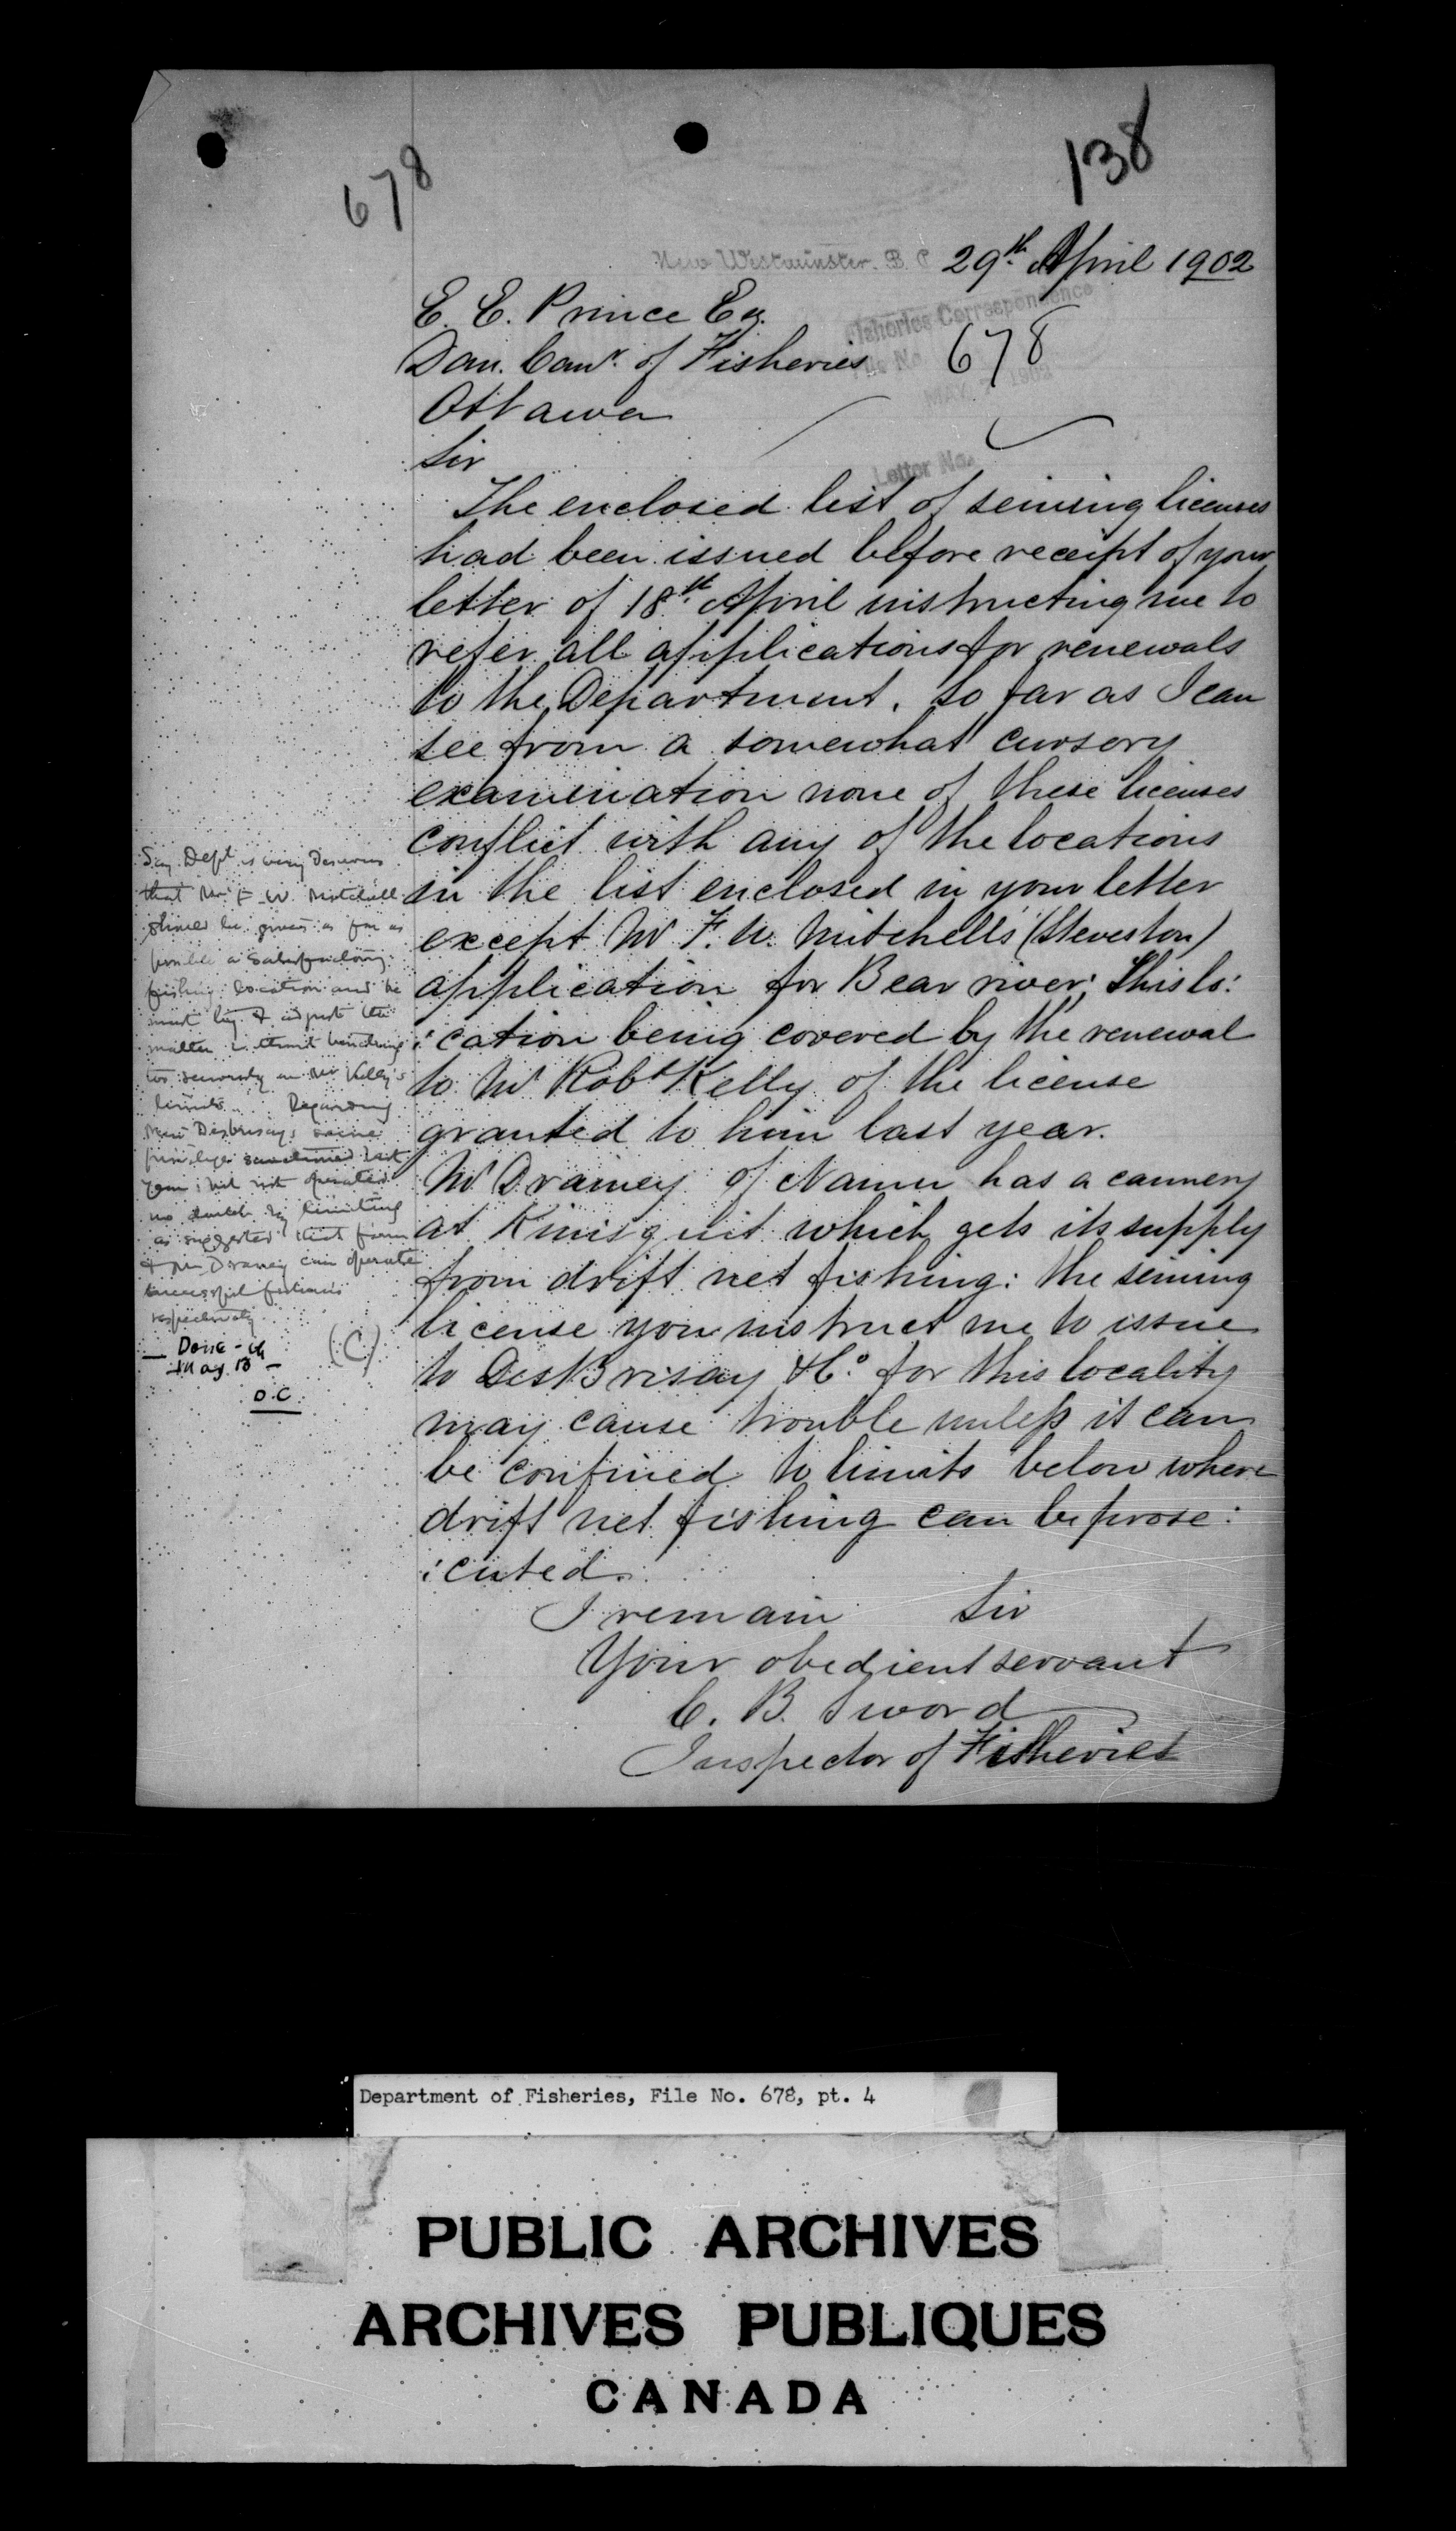 678
138
New Westminster. B. C 29th April 1902
E. E. Prince Esq.
Dom. Comr. of Fisheries
Fisheries Correspondence
File No 678
MAY 1902
Ottawa
Sir
Letter No.
The enclosed list of seining licenses
had been issued before receipt of your
letter of 18th April instructing me to
refer all applications for renewals
to the Department. So far as I can
see from a somewhat cursory
examination none of these licenses
conflict with any of the locations
in the list enclosed in your letter
except Mr F. W. Mitchells (Steveston)
application for Bear river: This lo:
:cation being covered by the renewal
to Mr Robt Kelly of the license
granted to him last year.
Mr Draney of Namu has a cannery
at Kimsquit which gets its supply
from drift net fishing: the seining
license you instruct me to issue
to DesBrisay & Co. for this locality
may cause trouble unless it can
be confined to limits below where
drift net fishing can be prose:
:cuted.
I remain Sir
Your obedient servant
C. B. Sword
Inspector of Fisheries
Say Dept is very desirous
that Mr F. W. Mitchell
should be given as far as
possible a satisfactory
fishing location and he
must try & adjust the
matter without trenching
too seriously on Mr Kelly's
limits. Regarding
Messrs Desbrisay's seine
privilege sanctioned last
year but not operated
no doubt by limiting
as suggested that firm
& Mr Draney can operate
successful
respectively
Done - 
May 13
O.C.
(C)
Department of Fisheries, File No. 678, pt. 4
PUBLIC ARCHIVES
ARCHIVES PUBLIQUES
CANADA